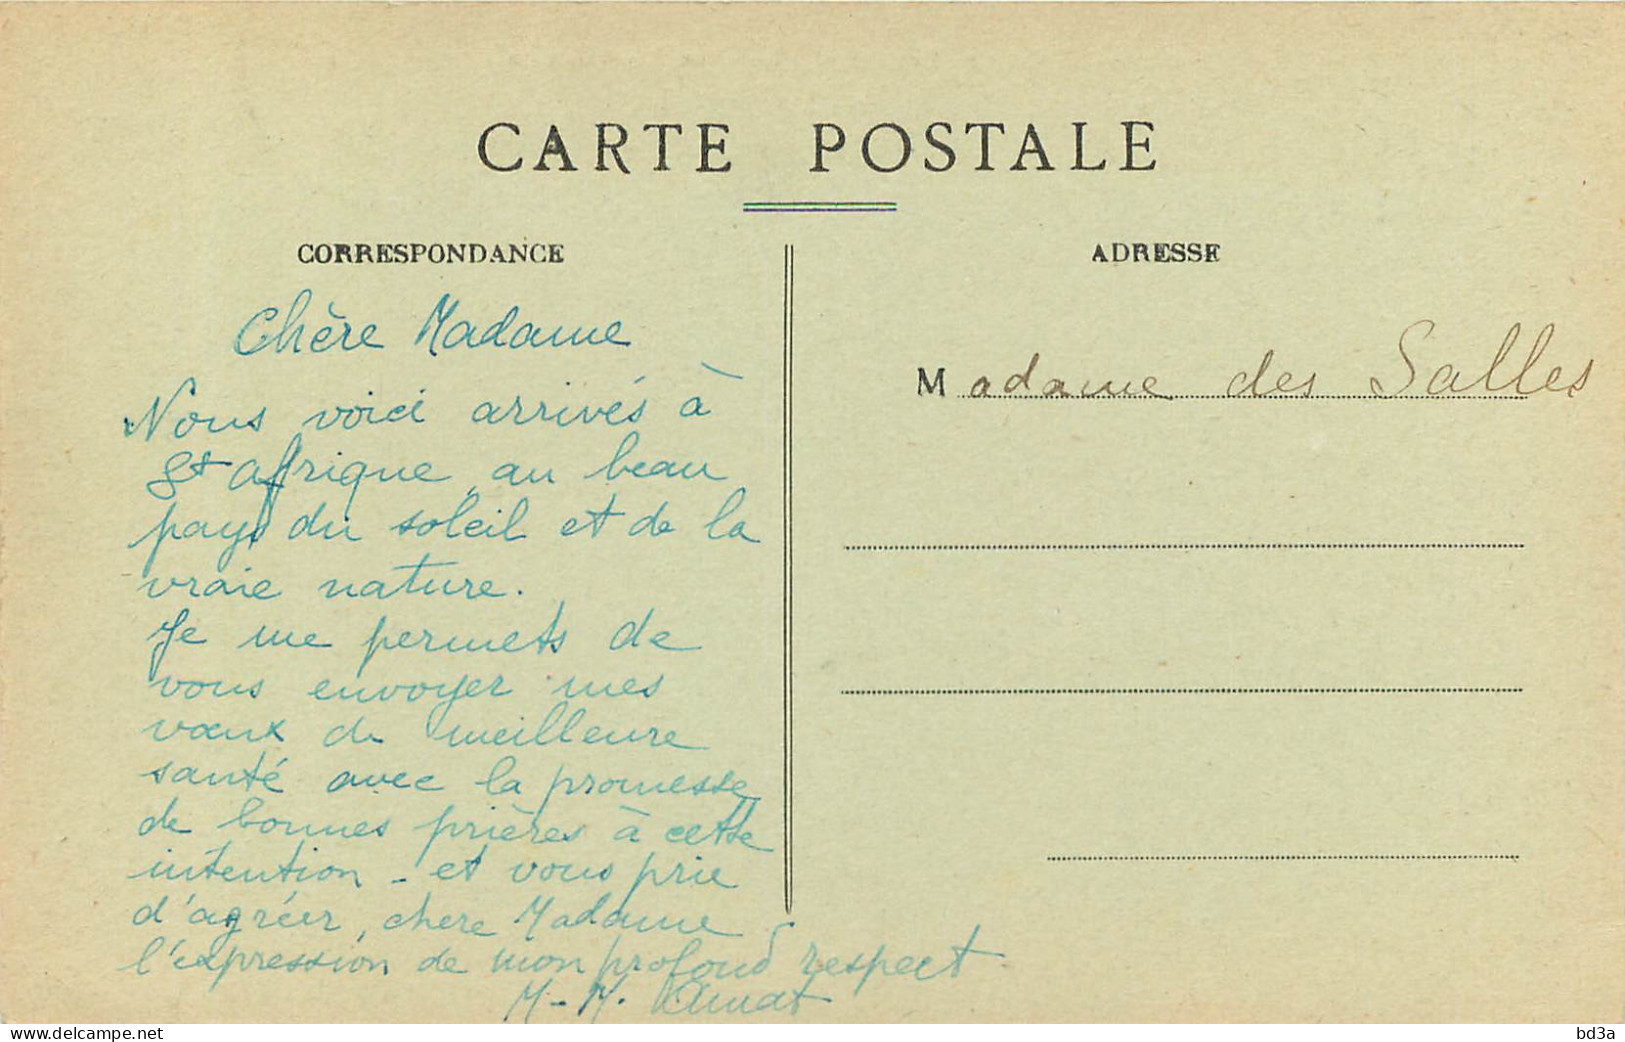 CARTE POSTALE
CORRESPONDANCE
Chère Madame
Nous voici arrivés à
St Afrique, au beau
pays du soleil et de la
vraie nature.
Je me permets de
vous envoyer mes
vœux de meilleure
santé avec la promesse
de bonnes prières à cette
intention - et vous prie
d'agréer, chere Madame
l'expression de mon profond respect
M-M.
ADRESSE
Madame des Salles
www.delcampe.net
bd3a